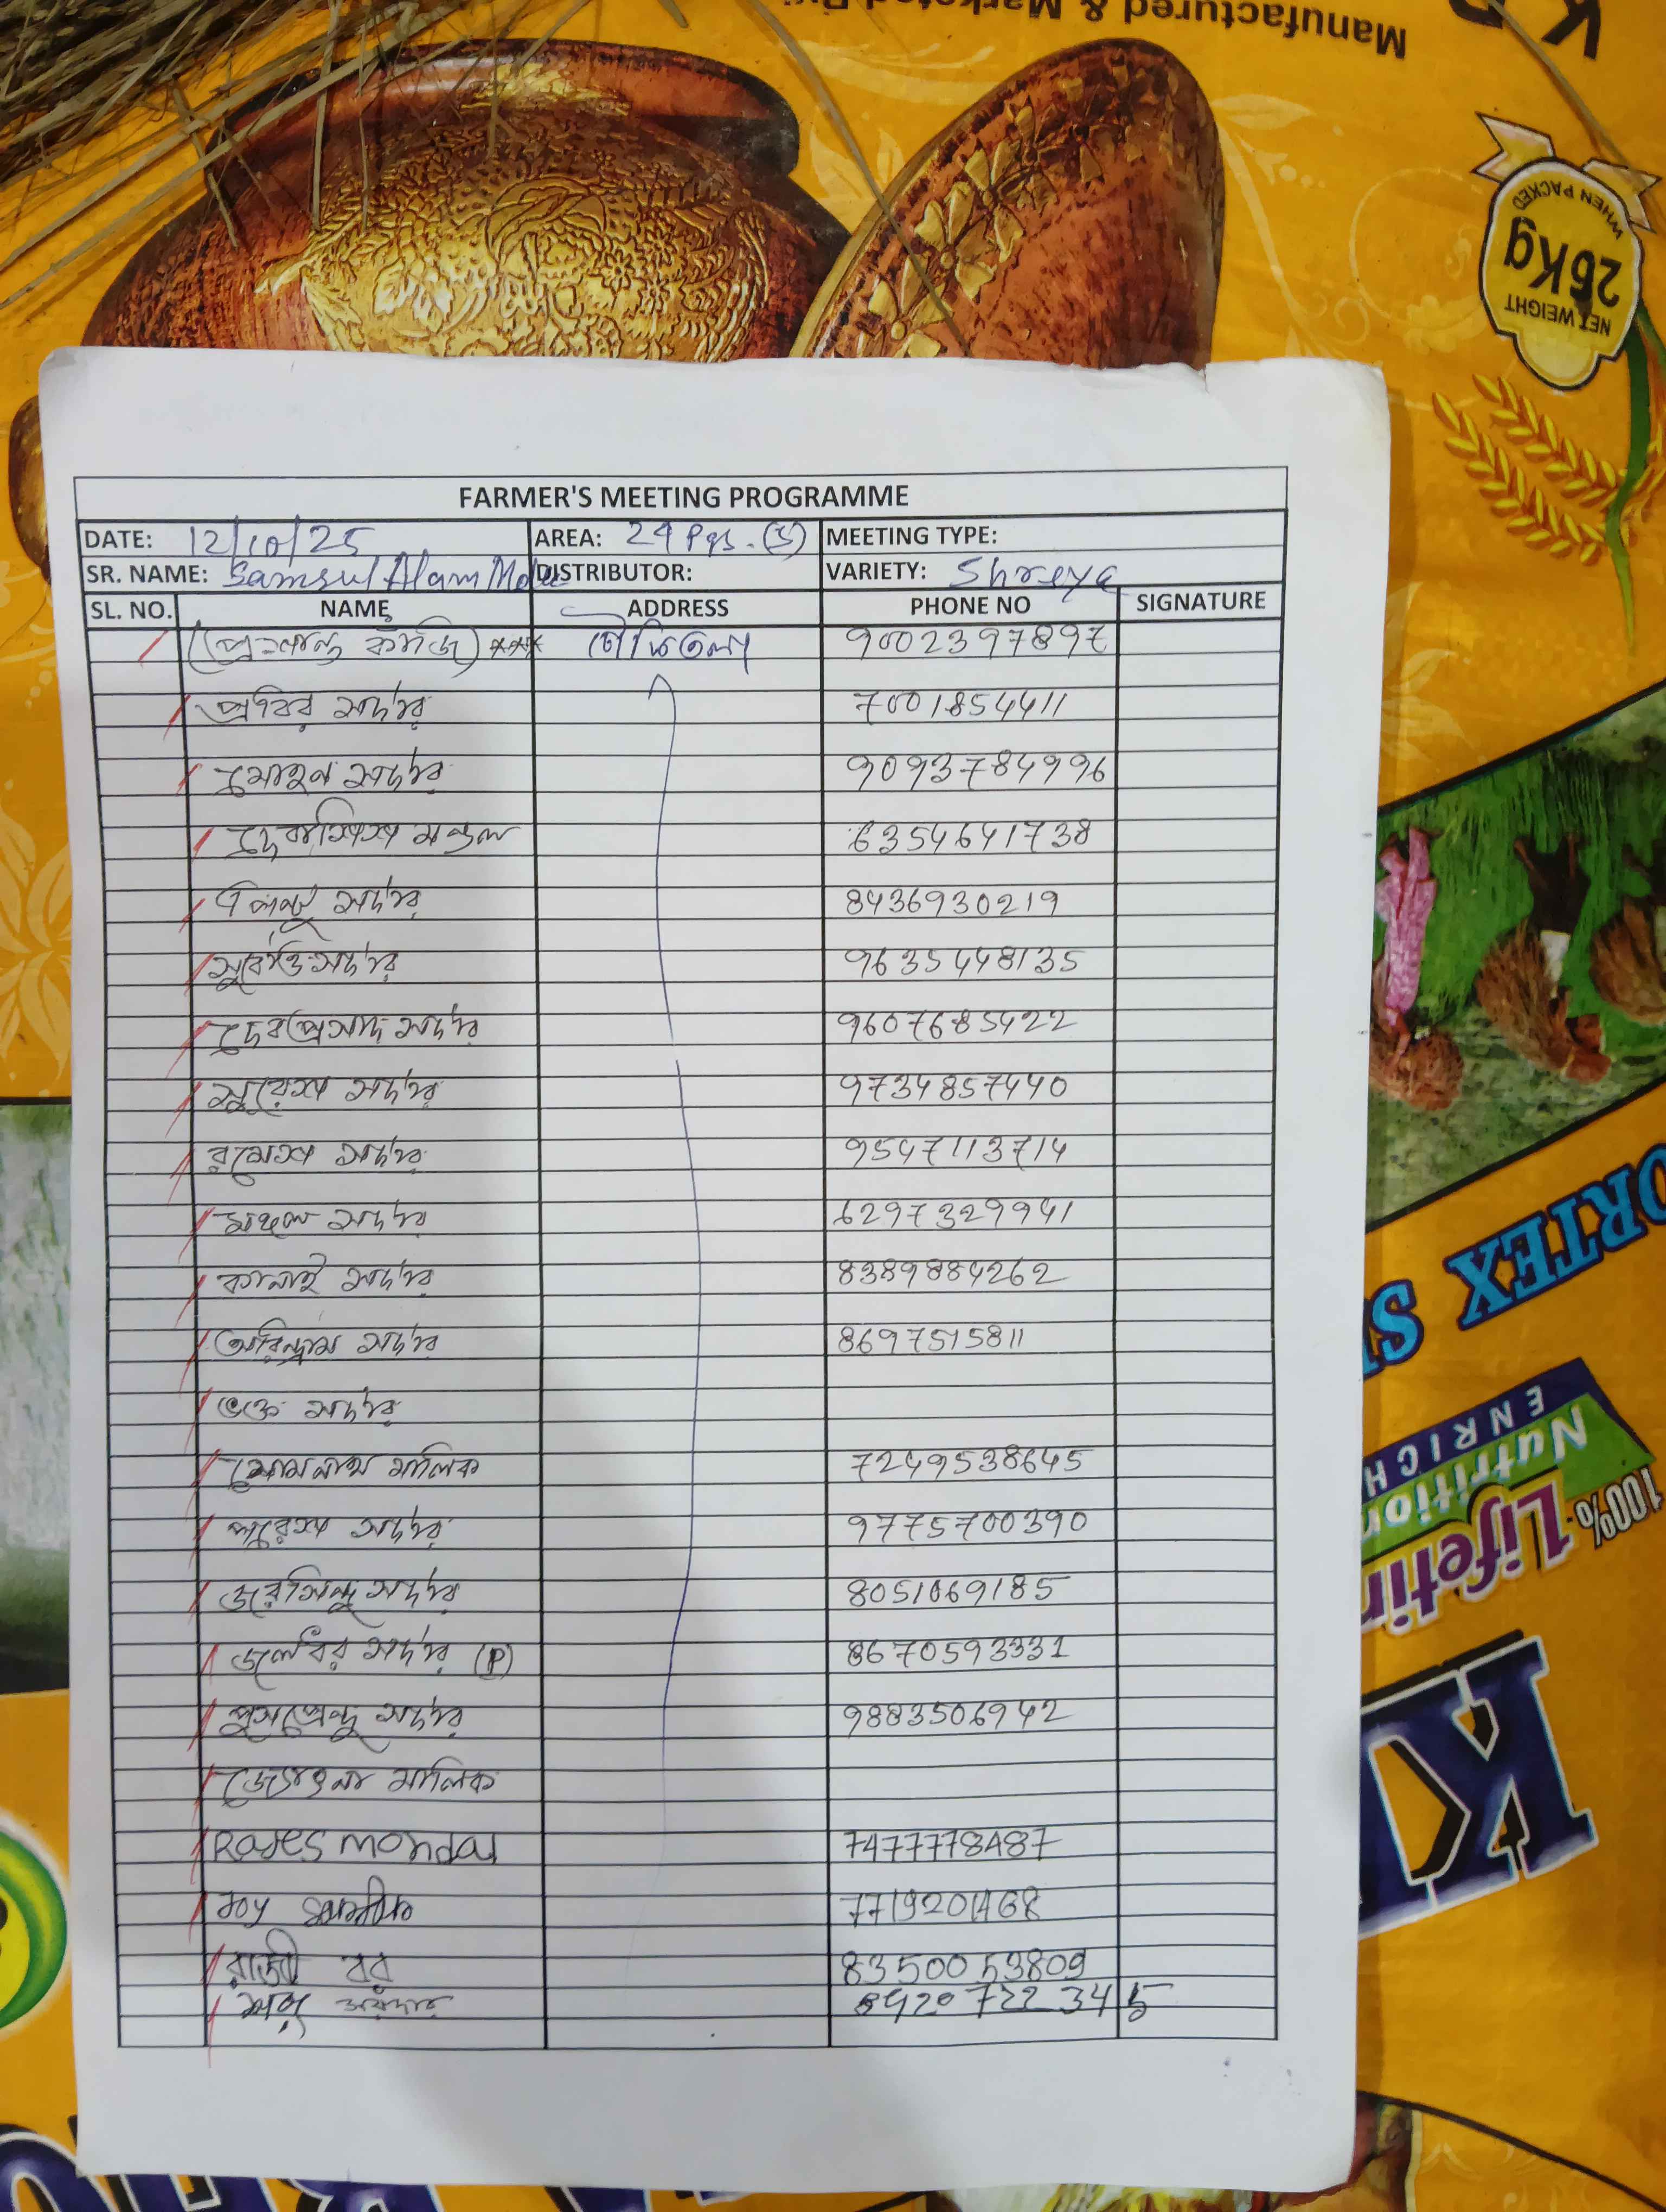 Manufactured & Marketed By:
NET WEIGHT
26Kg
WHEN PACKED
FARMER'S MEETING PROGRAMME
DATE: 12/10/25 AREA: 24 Pgs. (S) MEETING TYPE:
SR. NAME: Samsul Alam DISTRIBUTOR: VARIETY: Shreya
SL. NO. NAME ADDRESS PHONE NO SIGNATURE
(প্রশান্ত কাঁমজি) *** 9002397897
প্রবির সর্দার 7001854411
মোহন সর্দার 9093784996
দেবাসিস মন্ডল 6354641738
পিন্টু সর্দার 8436930219
সর্দার 9635448135
দেবপ্রসাদ সর্দার 9607685422
সুরেস সর্দার 9734857440
রমেস সর্দার 9547113714
মঙ্গল সর্দার 6297329941
কানাই সর্দার 8389884262
অরিন্দ্রাম সর্দার 8697515811
ভক্ত সর্দার
সোমনাথ মালিক 7249538645
পরেস সর্দার 9775700390
সর্দার 8051069185
জলধর সর্দার (P) 8670593331
সর্দার 9883506942
জোৎনা মালিক
Rajes Mondal 7477778487
Joy 7719201768
রাজী বর 8350053809
8920722345
ORTEX
ENRICH
Nutrition
100%
Lifetin
K